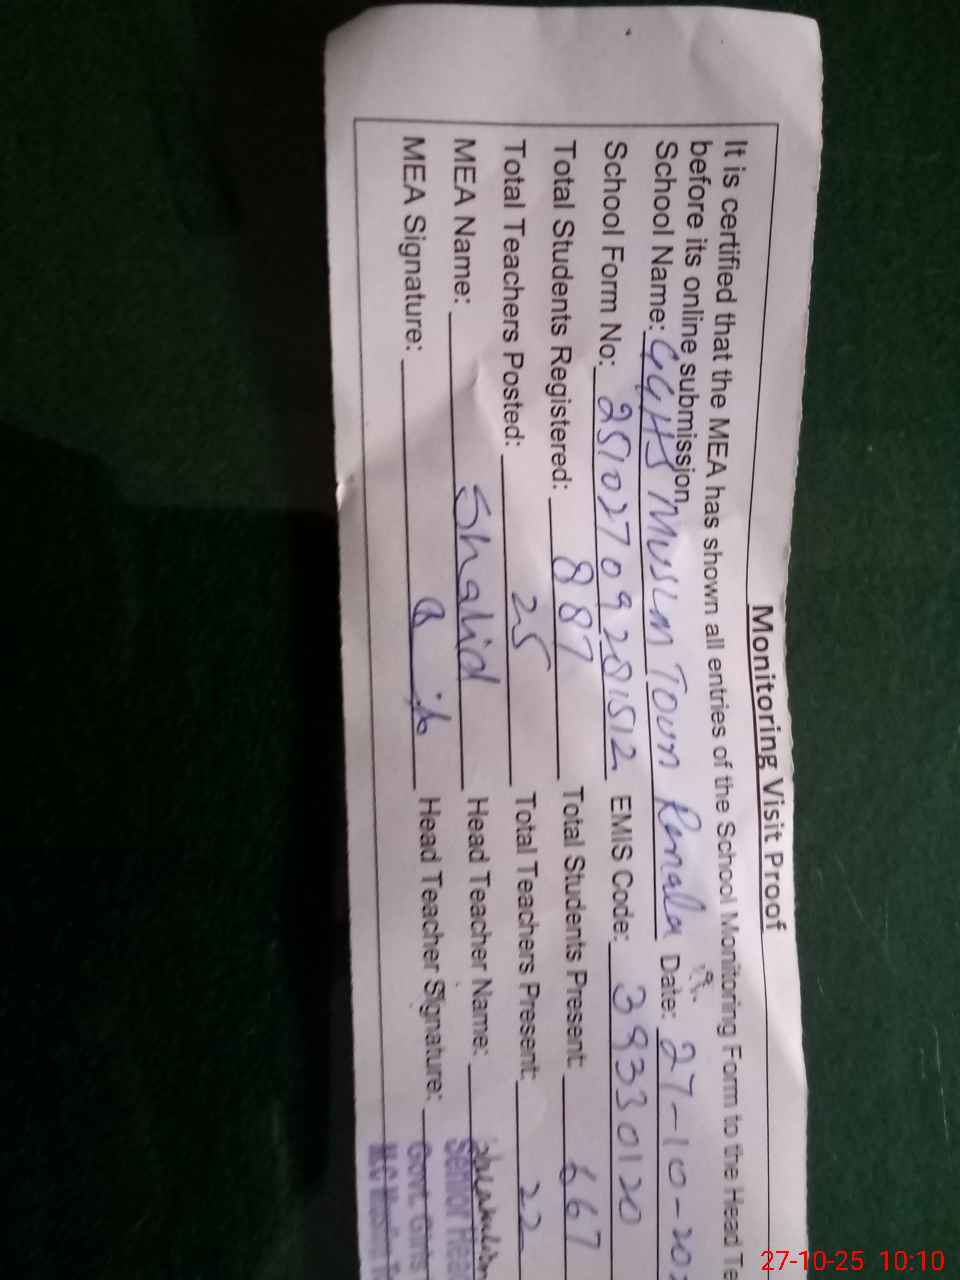 Monitoring Visit Proof
It is certified that the MEA has shown all entries of the School Monitoring Form to the Head Te
before its online submission.
School Name: GGHS Muslim Town Renala Date: 27-10-202
School Form No: 25102709281512 EMIS Code: 39330120
Total Students Registered: 887 Total Students Present: 667
Total Teachers Posted: 25 Total Teachers Present: 22
MEA Name: Shahid Head Teacher Name:
MEA Signature: Head Teacher Signature:
Senior Head
Govt. Girls
M.C Muslim To
27-10-25 10:10